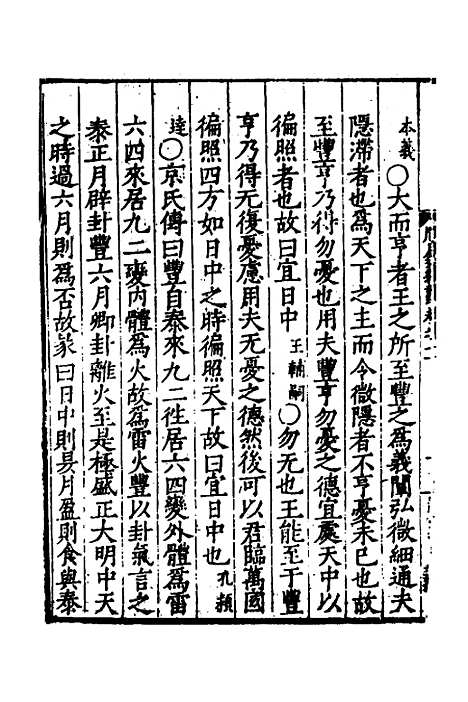 本義○大而亨者王之所至豐之為義闡弘微細通夫
隱滯者也為天下之主而令微隱者不亨憂未已也故
至豐亨乃得勿憂也用夫豐亨勿憂之德宜處天中以
徧照者也故曰宜日中王輔嗣○勿无也王能至于豐
亨乃得无復憂慮用夫无憂之德然後可以君臨萬國
徧照四方如日中之時徧照天下故曰宜日中也孔穎
達○京氏傳曰豐自泰來九二徃居六四變外體為雷
六四來居九二變内體為火故為雷火豐以卦氣言之
泰正月辟卦豐六月卿卦離火至是極盛正大明中天
之時過六月則為否故彖曰日中則昃月盈則食與泰